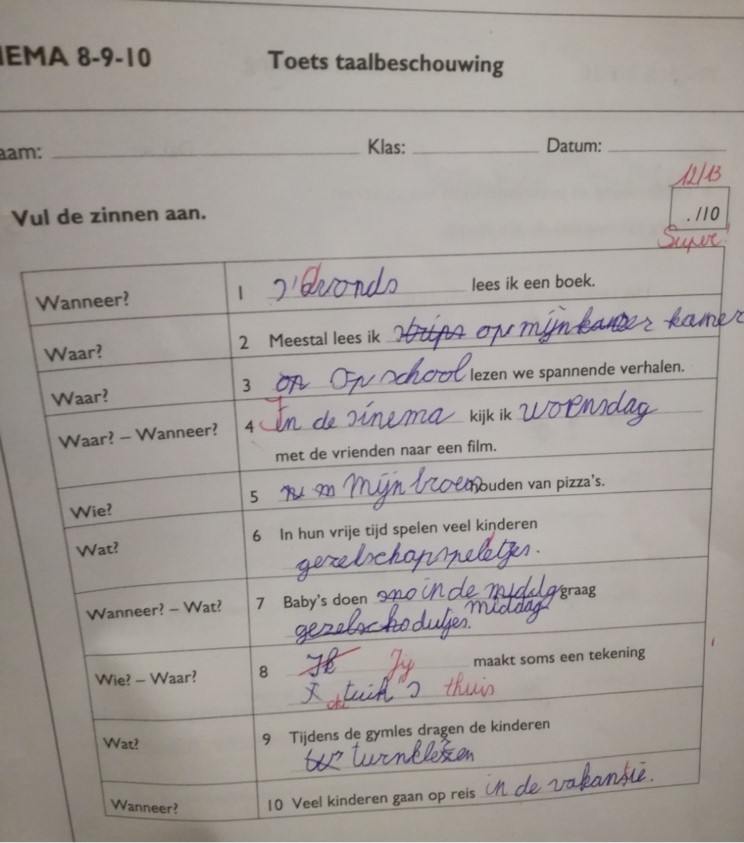 IEMA 8-9-10 Toets taalbeschouwing
aam: Klas: Datum:
12/13
Vul de zinnen aan. . /10
Super!
Wanneer? 1 s'Avonds lees ik een boek.
Waar? 2 Meestal lees ik strips op mijn kamer
Waar? 3 Op school lezen we spannende verhalen.
Waar? – Wanneer? 4 In de sinema kijk ik woensdag
met de vrienden naar een film.
Wie? 5 Mijn broen houden van pizza's.
Wat? 6 In hun vrije tijd spelen veel kinderen
gezelschapspeletjes.
Wanneer? – Wat? 7 Baby's doen in de middag graag
dutjes. middag
Wie? – Waar? 8 Ik Jij maakt soms een tekening
thuis
Wat? 9 Tijdens de gymles dragen de kinderen
turnkleren
Wanneer? 10 Veel kinderen gaan op reis in de vakantie.